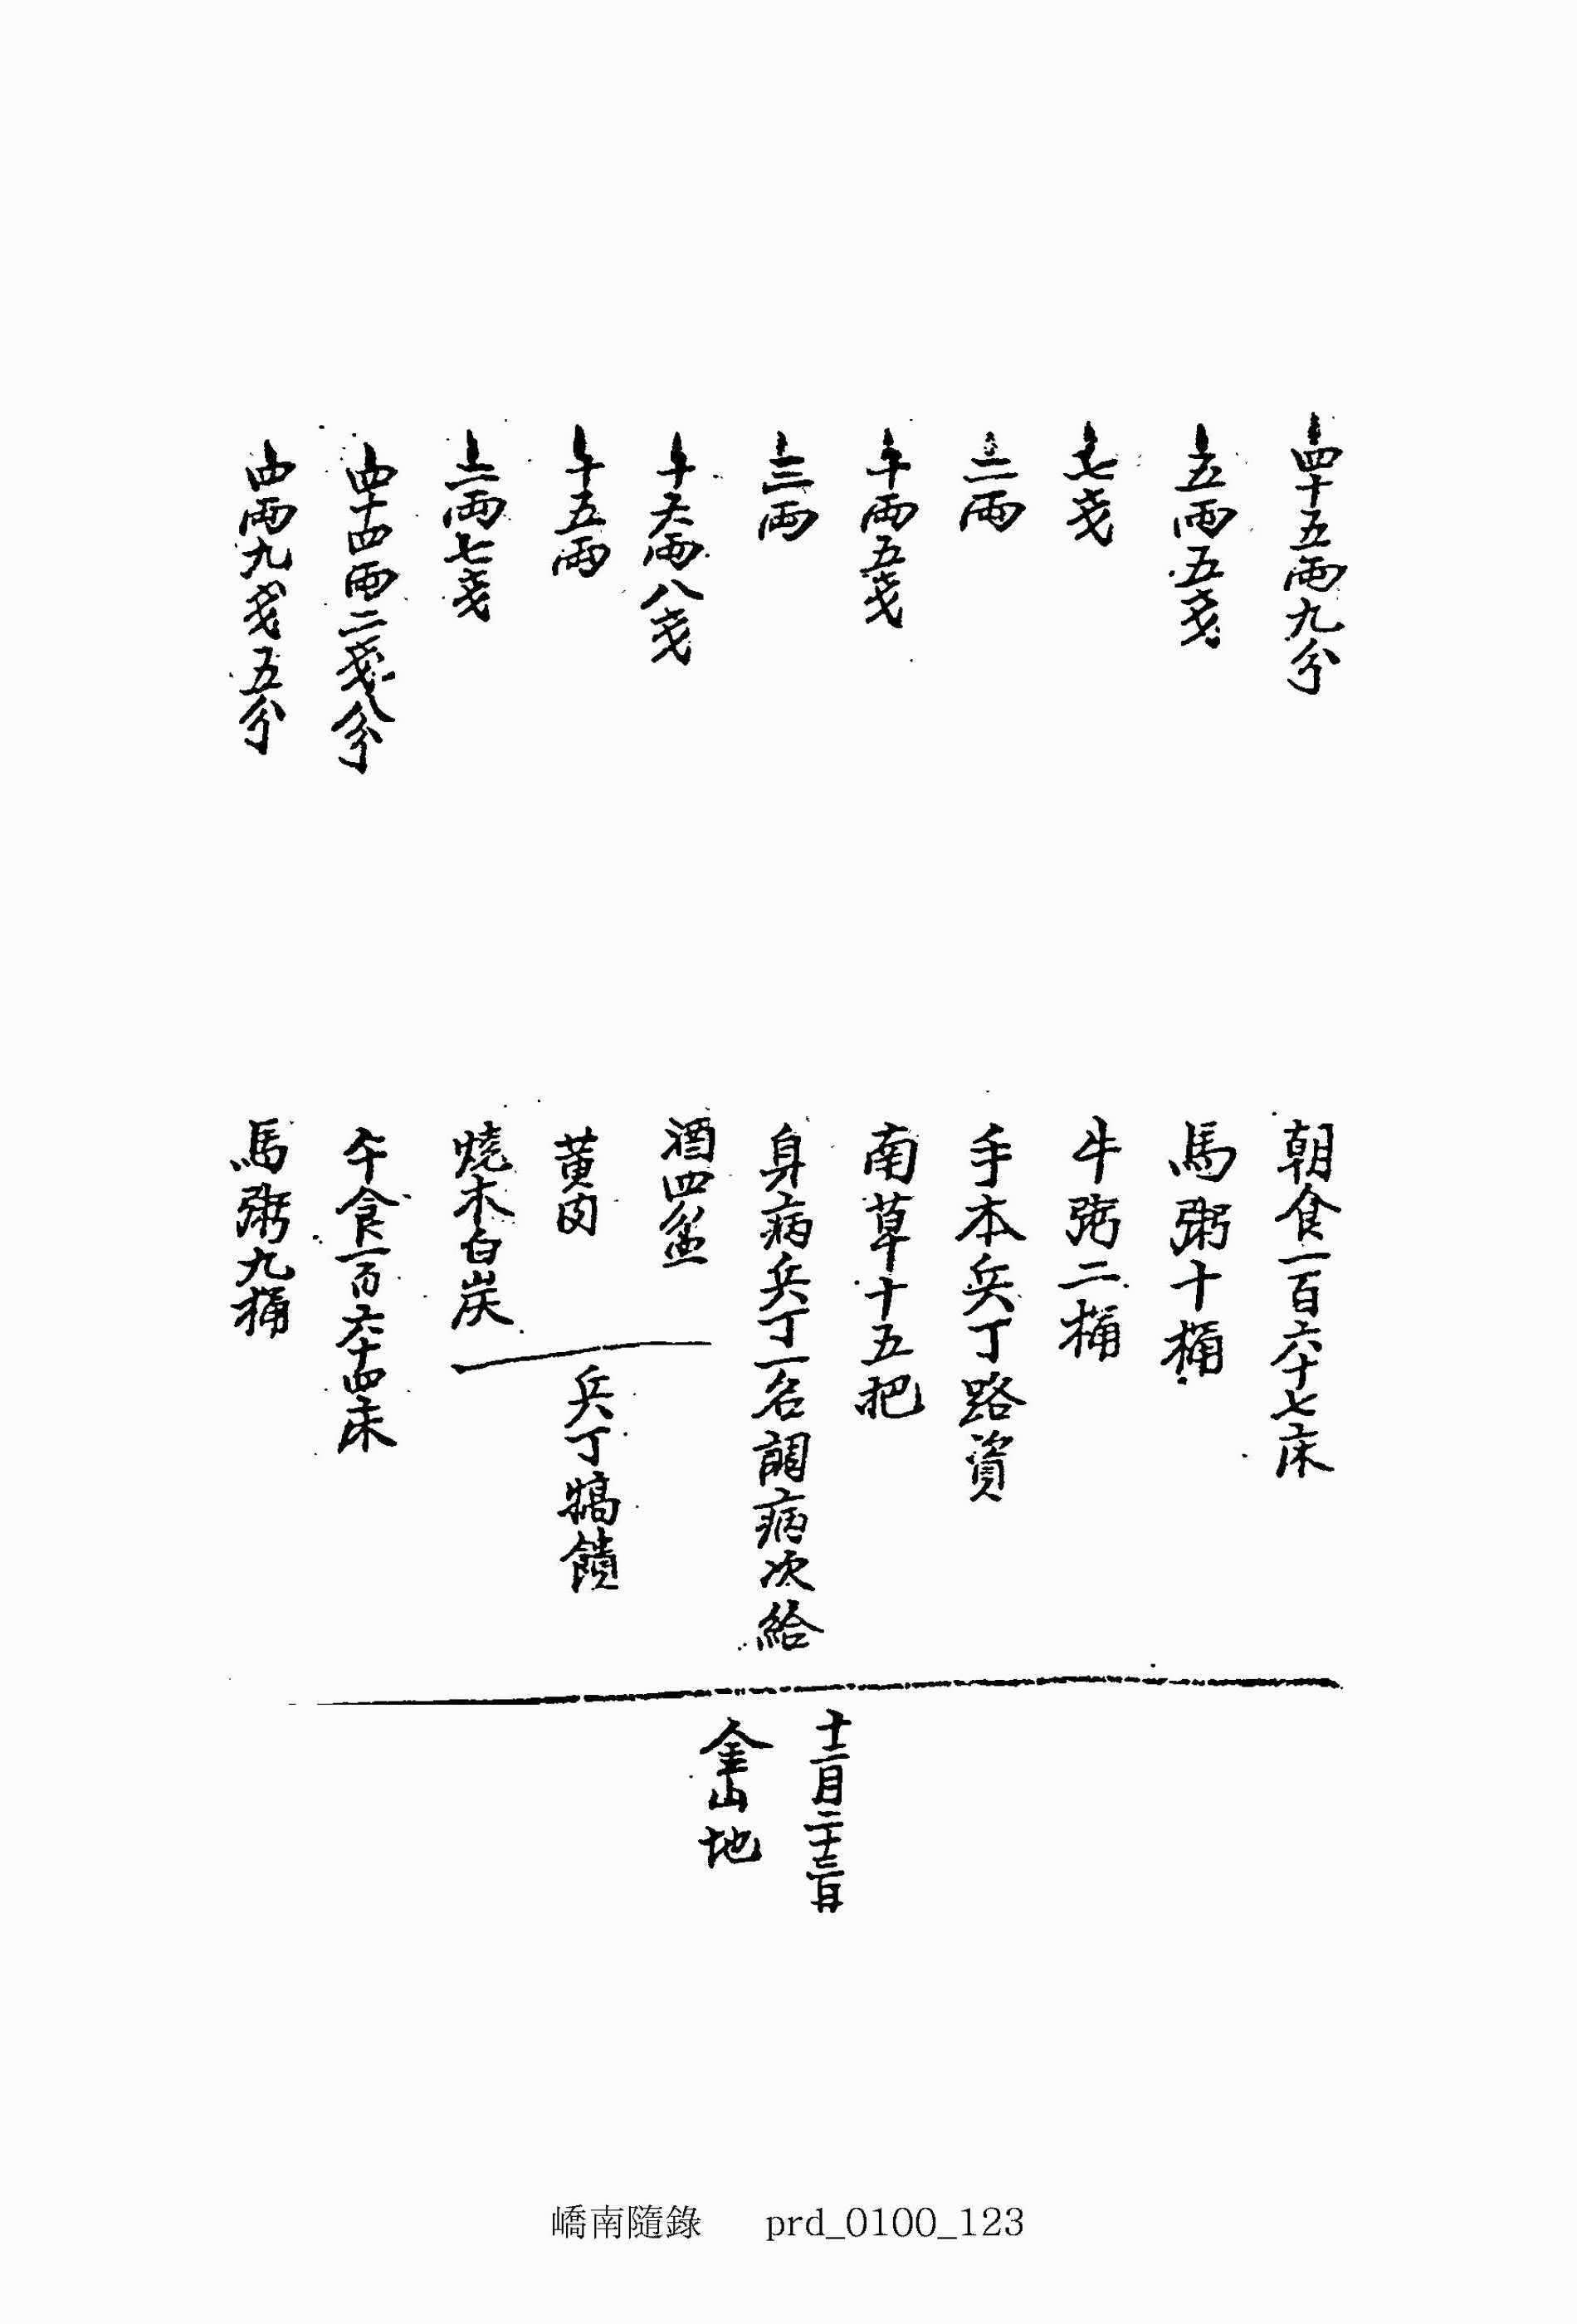 四十五兩九分 朝食一百六十七床
五兩五戔 馬粥十桶
七戔 牛粥二桶
二兩 手本兵丁路資
十兩五戔 南草十五把
三兩 身病兵丁一名調病次給
十六兩八戔 酒四盆
十五兩 黃肉
二兩七戔 燒木白炭
兵丁犒饋
四十四兩二戔八分 午食一百六十四床
四兩九戔五分 馬粥九桶
十二月二十三日
金山地
嶠南隨錄 prd_0100_123